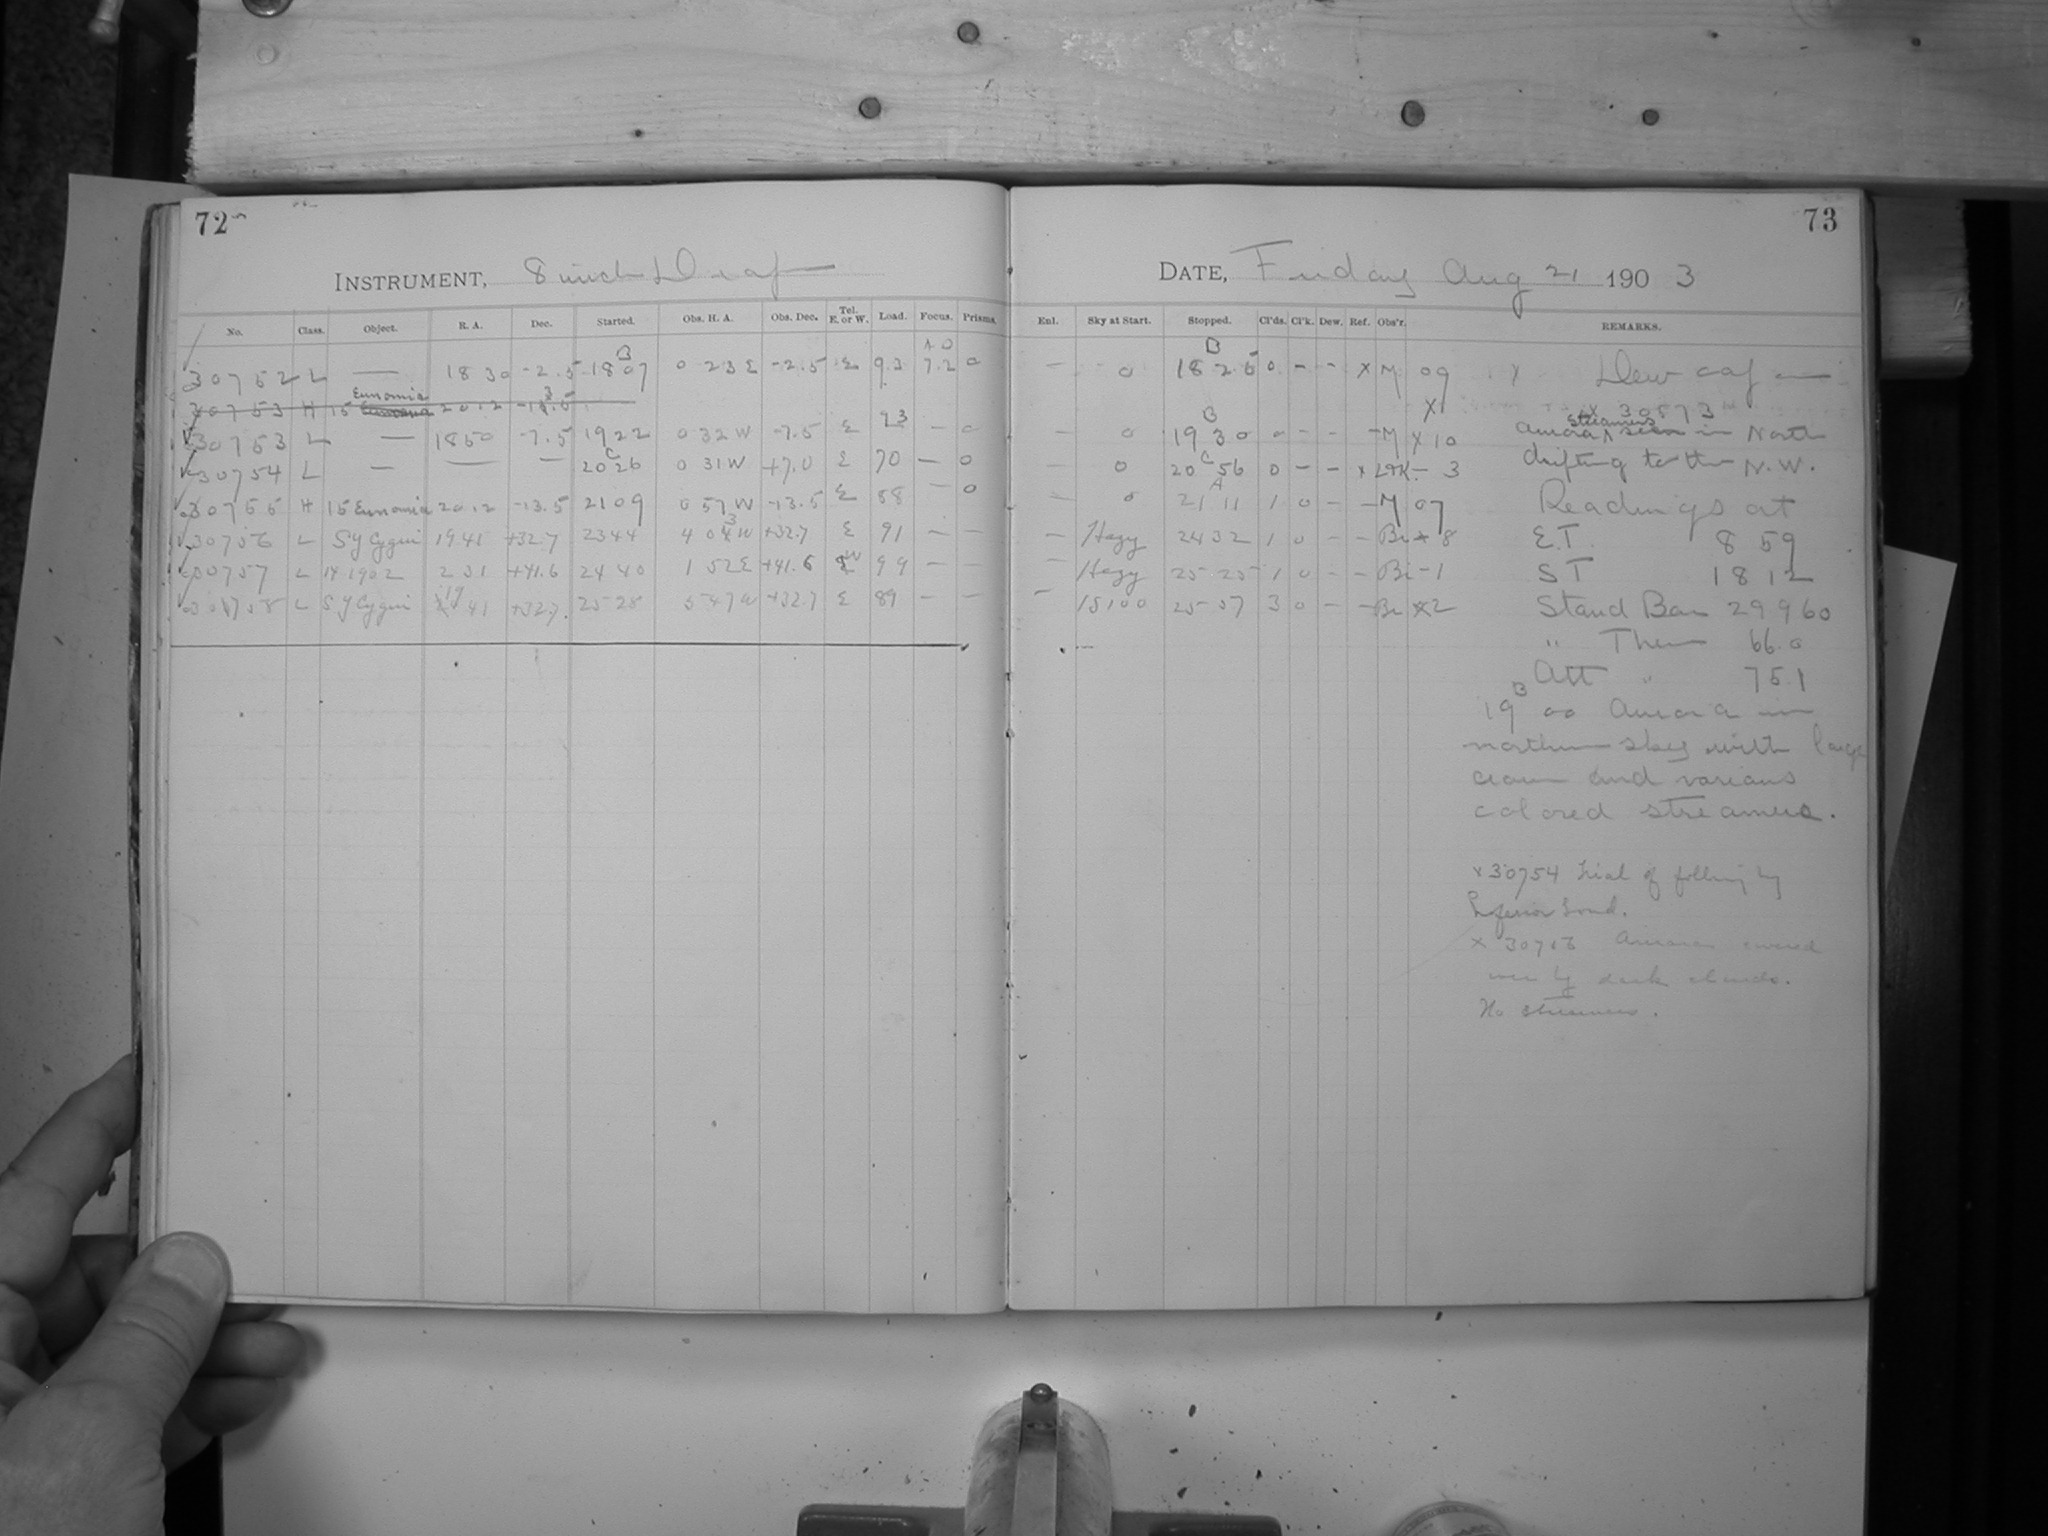 72
INSTRUMENT, 8 inch Draf
No. Class. Object. R. A. Dec. Started. Obs. H. A. Obs. Dec. Tel. E. or W. Load. Focus. Prisms.
30752 L — 18 30 -2.5 18 B 07 0 23 E -2.5 E 93 7.2 0
30753 H 15 Eunomia 20 12
30753 L — 1850 -7.5 1922 0 32 W -7.5 E 23 — 0
30754 L — — — 20 C 26 0 31 W +7.0 E 70 — 0
30755 H 15 Eunomia 20 12 -13.5 2109 0 57 W -13.5 E 88 — 0
30756 L SY Cygni 1941 +32.7 2344 4 03 W +32.7 E 91 — —
30757 L 14.1902 2 31 +41.6 24 40 1 52 E +41.6 W 99 — —
30758 L SY Cygni 19 41 +32.7 25 28 5 47 W +32.7 E 89 — —
73
DATE, Friday Aug 21 1903
Enl. Sky at Start. Stopped. Cl'ds. Cl'k. Dew. Ref. Obs'r. REMARKS.
— 0 18 B 26 0 - - x M 09 x Dew cap on
x 30573
— 0 19 B 30 0 - - - M x 10 Aurora streamers seen in North
— 0 20 C 56 0 - - x - 3 drifting to the N.W.
— 0 21 A 11 1 0 - - M 07 Readings at
— Hazy 24 32 1 0 - - Bi x 8 E.T. 8 59
Hazy 25 25 1 0 - - Bi - 1 S T 18 12
— 15100 25 57 3 0 - - Bi x2 Stand Bar 29 960
" Ther 66.0
Att " 75.1
19 B 00 Aurora in
northern sky with large
crown and various
colored streamers.
x 30754 Trial of following by
Inferior Bond.
x 30756 Aurora covered
over by dark clouds.
No streamers.